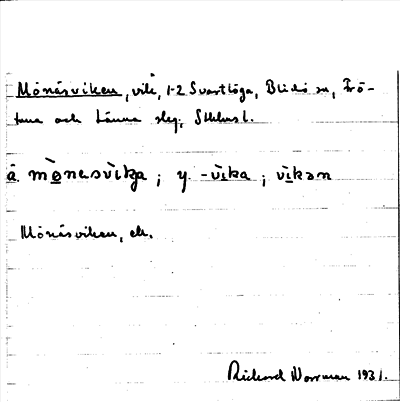 Mönäsviken, vik, 1-2 Svartlöga, Blidö sn, Frö-
tuna och Länna skg, Sthlms l.
å mönasvika; y -vika; vikən
Mönäsviken, ek.
Rickard Norrman 1931.